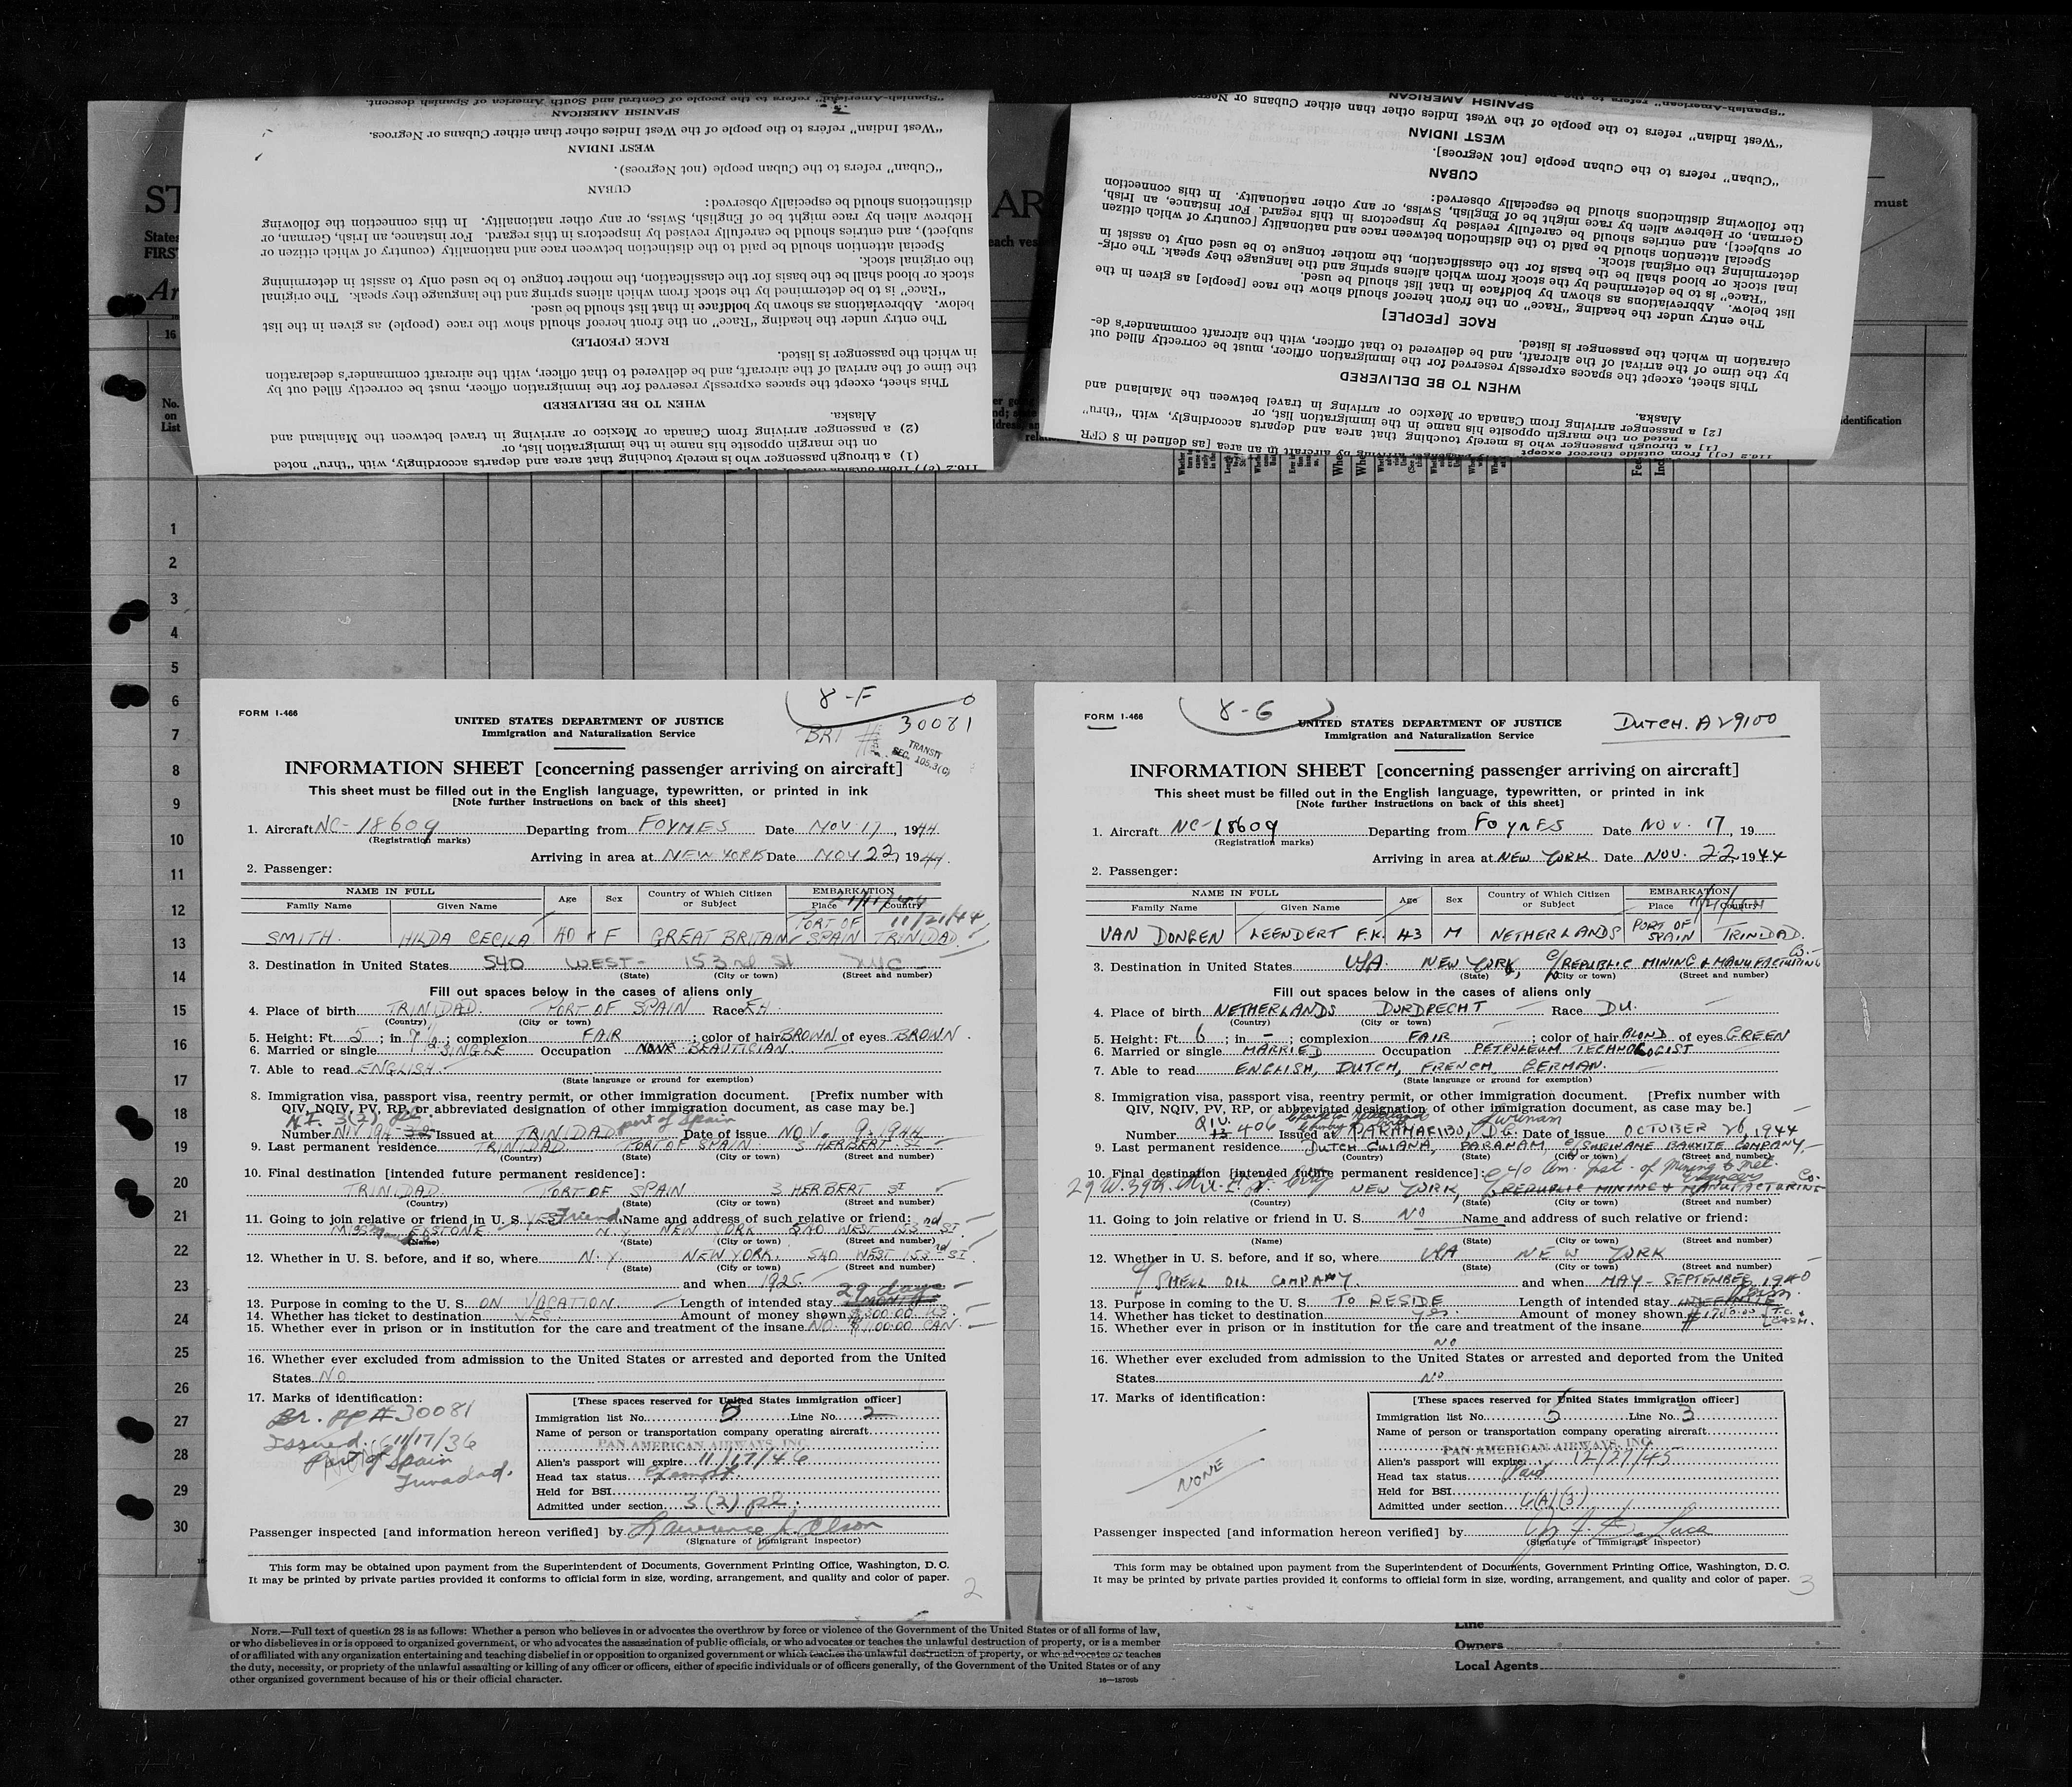 "Spanish-American" refers to the people of Central and South America of Spanish descent.
SPANISH AMERICAN
"West Indian" refers to the people of the West Indies other than either Cubans or Negroes.
WEST INDIAN
"Cuban" refers to the Cuban people (not Negroes).
CUBAN
distinctions should be especially observed:
Hebrew alien by race might be of English, Swiss, or any other nationality. In this connection the following
subject), and entries should be carefully revised by inspectors in this regard. For instance, an Irish, German, or
Special attention should be paid to the distinction between race and nationality (country of which citizen or
the original stock.
stock or blood shall be the basis for the classification, the mother tongue to be used only to assist in determining
"Race" is to be determined by the stock from which aliens spring and the language they speak. The original
below. Abbreviations as shown by boldface in that list should be used.
The entry under the heading "Race" on the front hereof should show the race (people) as given in the list
RACE (PEOPLE)
in which the passenger is listed.
the time of the arrival of the aircraft, and be delivered to that officer, with the aircraft commander's declaration
This sheet, except the spaces expressly reserved for the immigration officer, must be correctly filled out by
WHEN TO BE DELIVERED
Alaska.
(2) a passenger arriving from Canada or Mexico or arriving in travel between the Mainland and
on the margin opposite his name in the immigration list, or
(1) a through passenger who is merely touching that area and departs accordingly, with "thru" noted
SPANISH AMERICAN
"West Indian" refers to the people of the West Indies other than either Cubans or Negroes
WEST INDIAN
"Cuban" refers to the Cuban people [not Negroes].
CUBAN
the following distinctions should be especially observed:
German, or Hebrew alien by race might be of English, Swiss, or any other nationality. In this connection
or subject], and entries should be carefully revised by inspectors in this regard. For instance, an Irish,
Special attention should be paid to the distinction between race and nationality [country of which citizen
determining the original stock.
inal stock or blood shall be the basis for the classification, the mother tongue to be used only to assist in
"Race" is to be determined by the stock from which aliens spring and the language they speak. The orig-
list below. Abbreviations as shown by boldface in that list should be used.
The entry under the heading "Race" on the front hereof should show the race [people] as given in the
RACE [PEOPLE]
claration in which the passenger is listed.
by the time of the arrival of the aircraft, and be delivered to that officer, with the aircraft commander's de-
This sheet, except the spaces expressly reserved for the immigration officer, must be correctly filled out
WHEN TO BE DELIVERED
Alaska.
[2] a passenger arriving from Canada or Mexico or arriving in travel between the Mainland and
noted on the margin opposite his name in the immigration list, or
[1] a through passenger who is merely touching that area and departs accordingly, with "thru"
ST
States
FIRS
Ar
AR
each ves
must
16
No.
on
List
identification
1
2
3
4
5
6
7
8
9
10
11
12
13
14
15
16
17
18
19
20
21
22
23
24
25
26
27
28
29
30
8-F
FORM I-466
BRI # 30081
UNITED STATES DEPARTMENT OF JUSTICE
Immigration and Naturalization Service
TRANSIT
SEC. 105.3(C)
INFORMATION SHEET [concerning passenger arriving on aircraft]
This sheet must be filled out in the English language, typewritten, or printed in ink
[Note further instructions on back of this sheet]
1. Aircraft NC-18609 Departing from FOYNES Date NOV 17, 1944
(Registration marks)
Arriving in area at NEW YORK Date NOV 22, 1944.
2. Passenger:
NAME IN FULL Age Sex Country of Which Citizen or Subject EMBARKATION
Family Name Given Name Place Country
11/21/44
SMITH. HILDA CECILA 40 F GREAT BRITAIN PORT OF SPAIN TRINIDAD.
3. Destination in United States 540 WEST- 153rd St NYC
(State) (City or town) (Street and number)
Fill out spaces below in the cases of aliens only
4. Place of birth TRINIDAD. PORT OF SPAIN Race EH.
(Country) (City or town)
5. Height: Ft. 5 ; in. 7 ; complexion FAIR ; color of hair BROWN of eyes BROWN.
6. Married or single SINGLE Occupation NONE BEAUTICIAN.
7. Able to read ENGLISH.
(State language or ground for exemption)
8. Immigration visa, passport visa, reentry permit, or other immigration document. [Prefix number with
QIV, NQIV, PV, RP, or abbreviated designation of other immigration document, as case may be.]
3(2) port of Spain
Number 194 Issued at TRINIDAD Date of issue NOV. 9. 1944
9. Last permanent residence TRINIDAD PORT OF SPAIN 3 HERBERT ST
(Country) (City or town) (Street and number)
10. Final destination [intended future permanent residence]:
TRINIDAD. PORT OF SPAIN 3 HERBERT ST
(Country) (State) (City or town) (Street and number)
11. Going to join relative or friend in U. S. YES Friend Name and address of such relative or friend:
MISS EKSTONE N.Y. NEW YORK 540 WEST 153rd ST
(Name) (State) (City or town) (Street and number)
12. Whether in U. S. before, and if so, where N.Y. NEW YORK. 540 WEST 153rd ST
(State) (City or town) (Street and number)
and when 1925.
29 days
13. Purpose in coming to the U. S. ON VACATION Length of intended stay 1 MONTH
14. Whether has ticket to destination YES. Amount of money shown $300.00 US.
15. Whether ever in prison or in institution for the care and treatment of the insane NO. $100.00 CAN.
16. Whether ever excluded from admission to the United States or arrested and deported from the United
States NO
17. Marks of identification:
Br. pp # 30081
Issued 11/17/36
Port of Spain
Trinadad.
[These spaces reserved for United States immigration officer]
Immigration list No. 5 Line No. 2
Name of person or transportation company operating aircraft
PAN AMERICAN AIRWAYS, INC.
Alien's passport will expire 11/17/46
Head tax status exempt
Held for BSI
Admitted under section 3(2) pl.
Passenger inspected [and information hereon verified] by Lawrence J. Olson
(Signature of immigrant inspector)
This form may be obtained upon payment from the Superintendent of Documents, Government Printing Office, Washington, D. C.
It may be printed by private parties provided it conforms to official form in size, wording, arrangement, and quality and color of paper.
2
8-G
FORM I-466
DUTCH. A29100
UNITED STATES DEPARTMENT OF JUSTICE
Immigration and Naturalization Service
INFORMATION SHEET [concerning passenger arriving on aircraft]
This sheet must be filled out in the English language, typewritten, or printed in ink
[Note further instructions on back of this sheet]
1. Aircraft NC-18609 Departing from FOYNES Date NOV. 17, 19
(Registration marks)
Arriving in area at NEW YORK Date NOV. 22, 1944
2. Passenger:
NAME IN FULL Age Sex Country of Which Citizen or Subject EMBARKATION
Family Name Given Name Place Country
VAN DONGEN LEENDERT F.K. 43 M NETHERLANDS PORT OF SPAIN TRINIDAD.
3. Destination in United States USA. NEW YORK, c/o REPUBLIC MINING & MANUFACTURING Co.
(State) (City or town) (Street and number)
Fill out spaces below in the cases of aliens only
4. Place of birth NETHERLANDS DORDRECHT Race DU.
(Country) (City or town)
5. Height: Ft. 6 ; in. - ; complexion FAIR ; color of hair BLOND of eyes GREEN
6. Married or single MARRIED Occupation PETROLEUM TECHNOLOGIST
7. Able to read ENGLISH, DUTCH, FRENCH, GERMAN.
(State language or ground for exemption)
8. Immigration visa, passport visa, reentry permit, or other immigration document. [Prefix number with
QIV, NQIV, PV, RP, or abbreviated designation of other immigration document, as case may be.]
Surinam
Number QIV. 406 Issued at PARAMARIBO, D.G. Date of issue OCTOBER 26, 1944
9. Last permanent residence DUTCH GUIANA, PARANAM, c/o SURINAME BAUXITE COMPANY,
(Country) (City or town) (Street and number)
10. Final destination [intended future permanent residence]: c/o Am. Inst. of Mining & Met.
29 W. 39th NEW YORK, c/o REPUBLIC MINING & MANUFACTURING Co.
(Country) (State) (City or town) (Street and number)
11. Going to join relative or friend in U. S. NO Name and address of such relative or friend:
(Name) (State) (City or town) (Street and number)
12. Whether in U. S. before, and if so, where USA NEW YORK
(State) (City or town) (Street and number)
c/o SHELL OIL COMPANY. and when MAY - SEPTEMBER 1940
Perm.
13. Purpose in coming to the U. S. TO RESIDE Length of intended stay INDEFINITE
14. Whether has ticket to destination yes. Amount of money shown T.C. & CASH.
15. Whether ever in prison or in institution for the care and treatment of the insane
NO
16. Whether ever excluded from admission to the United States or arrested and deported from the United
States NO
17. Marks of identification:
NONE
[These spaces reserved for United States immigration officer]
Immigration list No. 5 Line No. 3
Name of person or transportation company operating aircraft
PAN AMERICAN AIRWAYS, INC.
Alien's passport will expire 12/27/45
Head tax status Paid
Held for BSI
Admitted under section 6(A)(3)
Passenger inspected [and information hereon verified] by
(Signature of immigrant inspector)
This form may be obtained upon payment from the Superintendent of Documents, Government Printing Office, Washington, D. C.
It may be printed by private parties provided it conforms to official form in size, wording, arrangement, and quality and color of paper.
3
NOTE.—Full text of question 28 is as follows: Whether a person who believes in or advocates the overthrow by force or violence of the Government of the United States or of all forms of law,
or who disbelieves in or is opposed to organized government, or who advocates the assassination of public officials, or who advocates or teaches the unlawful destruction of property, or is a member
of or affiliated with any organization entertaining and teaching disbelief in or opposition to organized government or which teaches the unlawful destruction of property, or who advocates or teaches
the duty, necessity, or propriety of the unlawful assaulting or killing of any officer or officers, either of specific individuals or of officers generally, of the Government of the United States or of any
other organized government because of his or their official character.
16—18709b
Line
Owners
Local Agents